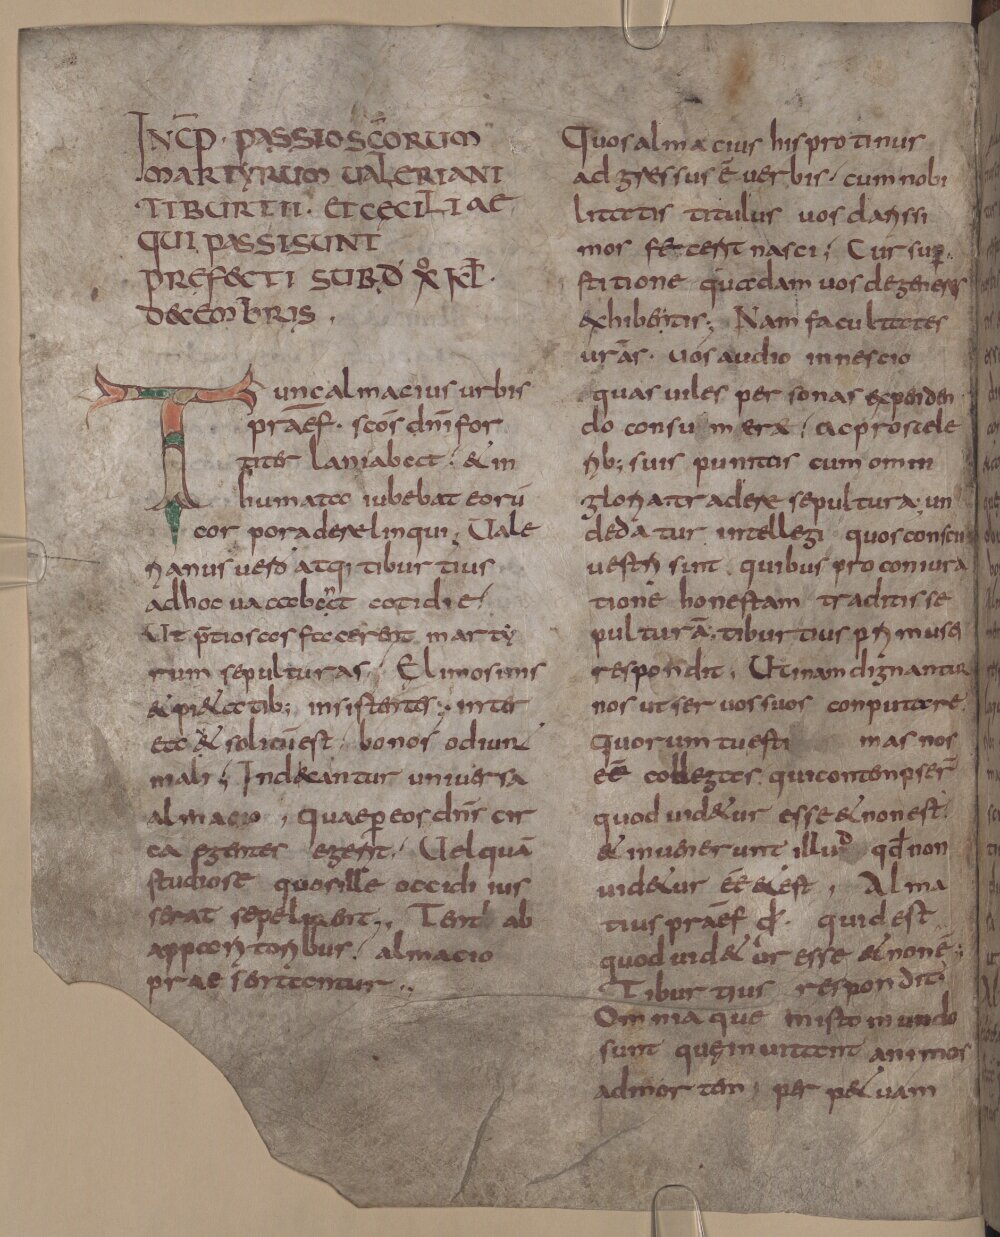 INCP · PASSIO SCORUM
MARTYRUM UALERIANI
TIBURTII · ET CECILIAE
QUI PASSI SUNT
PREFECTI SUB D X KL ·
DECEMBRIS .
Tunc almacius urbis
praef · scos dni for
titer laniabat · & in
humata iubebat eorū
corpora derelinqui ; Uale
rianus uero atq; tiburtius
ad hoc uacabant cotidie ;
Ut p̄tiosas facerent marty
rum sepulturas ; Elimosinis
& pi&atib; insistentes ; inter
ea & solitū est bonos odiunt
mali ; Indicantur uniuersa
almacio , Quae per eos dn̄s cir
ca egentes egerit ; Uel quā
studiose quos ille occidi ius
serat sepelirent ; Tenti ab
apparitoribus · almacio
praesentantur ..
Quos almacius his protinus
adgressus ē uerbis · cum nobi
litatis titulus uos clarissi
mos fecerit nasci ; Cur sup
stitione quadam uos degeneres
exhibetis ; Nam facultates
urās · uos audio in nescio
quas uiles personas expenden
do consumere ; ac pro scele
rib; suis punitis cum omni
gloria tradere sepultura ; un
de datur intellegi quos consci
uestri sint quibus pro coniura
tione honestam traditis se
pulturā ; tiburtius primus ei
respondit ; Utinam dignantur
nos ut seruos suos conputare
Quorum tu esti mas nos
eē collegas qui contempser̄
quod uid&ur esse & non est ;
& inuenerunt illud qd̄ non
uid&ur eē & est , Alma
tius praef d · quid est
quod uid&ur esse & non ē ;
Tiburtius respondit
Omnia que in isto mundo
sunt que inuitant animos
ad mortem ; per p&uam